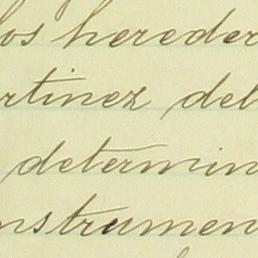 los hereder
rtinez del
determin
nstrumen